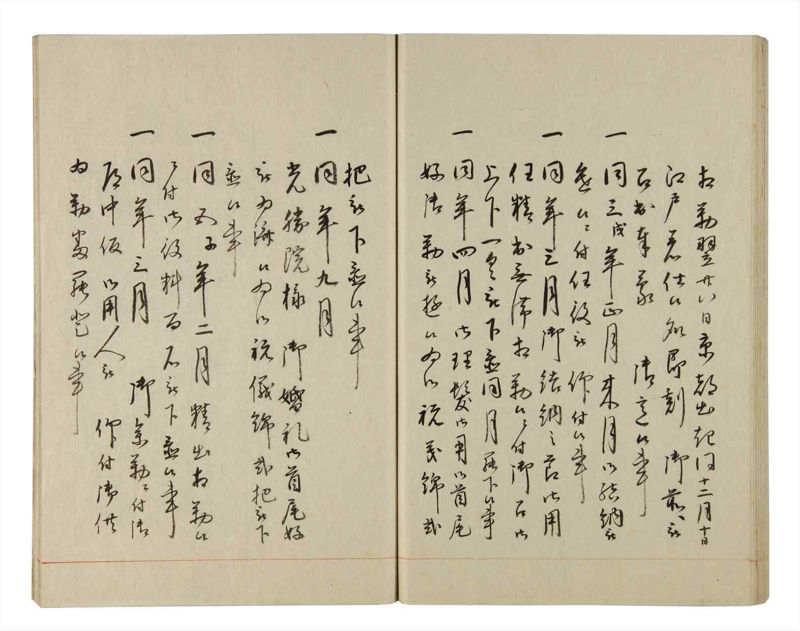 相勤翌廿八日京都出起同十二月十日
江戸着仕候処即刻 御前へ被
召出奉蒙 御意候事
一 同三戌年正月来月御結納被
遊候ニ付任役被 仰付候事
一 同年三月御結納之節御用
仕精出無滞相勤候ニ付御召御
上下一具被下置同月罷下候事
一 同年四月御理髪御用御首尾
好済勤被遊候為御祝義錦弐
把被下置候事
一 同年九月
光勝院様御婚礼御首尾好
被為済候為御祝儀錦弐把被下
置候事
一 同五子年二月精出相勤候
ニ付御役料百石被下置候事
一 同年三月 御参勤ニ付御
道中仮御用人被 仰付御供
為勤罷登候事